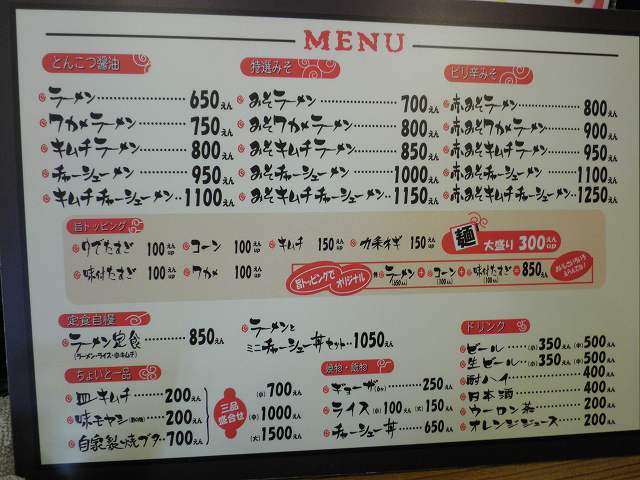 MENU
とんこつ醤油
ラーメン 650えん
ワカメラーメン 750えん
キムチラーメン 800えん
チャーシューメン 950えん
キムチチャーシューメン 1100えん
特選みそ
みそラーメン 700えん
みそワカメラーメン 800えん
みそキムチラーメン 850えん
みそチャーシューメン 1000えん
みそキムチチャーシューメン 1150えん
ピリ辛みそ
赤みそラーメン 800えん
赤みそワカメラーメン 900えん
赤みそキムチラーメン 950えん
赤みそチャーシューメン 1100えん
赤みそキムチチャーシューメン 1250えん
旨トッピング
ゆでたまご 100えんup コーン 100えんup キムチ 150えんup 九条ネギ 150えんup
味付たまご 100えんup ワカメ 100えんup
麺 大盛り 300えんup
旨トッピングでオリジナル
例 ラーメン(650えん)+コーン(100えん)+味付たまご(100えん)=850えん
定食自慢
ラーメン定食 850えん
(ラーメン・ライス・小キムチ)
ラーメンと
ミニチャーシュー丼セット 1050えん
ちょいと一品
皿キムチ 200えん
味モヤシ 200えん
自家製焼ブタ 700えん
三品盛合せ
(小) 700えん
(中) 1000えん
(大) 1500えん
焼物・飯物
ギョーザ 250えん
ライス (小)100えん (大)150えん
チャーシュー丼 650えん
ドリンク
ビール (小)350えん (中)500えん
生ビール (小)350えん (中)500えん
酎ハイ 400えん
日本酒 400えん
ウーロン茶 200えん
オレンジジュース 200えん